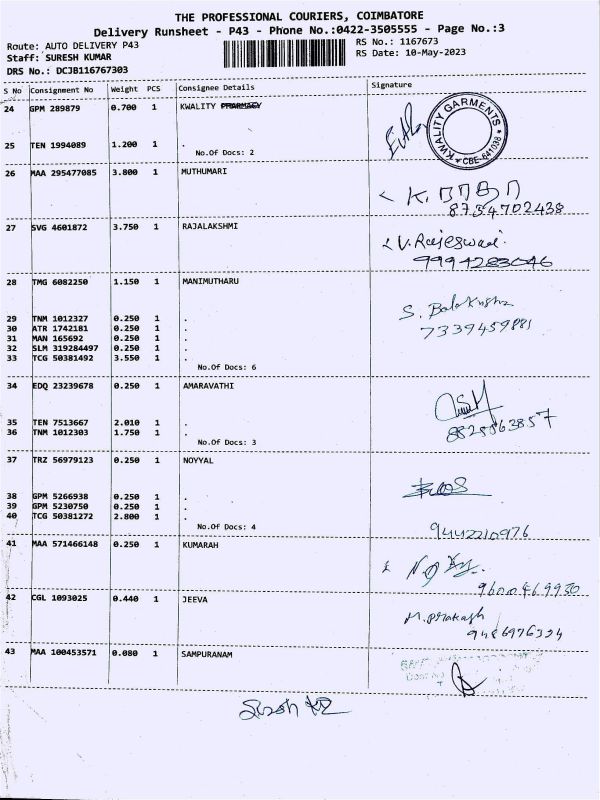 THE PROFESSIONAL COURIERS, COIMBATORE
Delivery Runsheet - P43 - Phone No.:0422-3505555 - Page No.:3
Route: AUTO DELIVERY P43
RS No.: 1167673
Staff: SURESH KUMAR
RS Date: 10-May-2023
DRS No.: DCJB116767303
S No Consignment No Weight PCS Consignee Details Signature
24 GPM 289879 0.700 1 KWALITY PHARMACY
KWALITY GARMENTS
* CBE-641038 *
25 TEN 1994089 1.200 1 .
No.Of Docs: 2
26 MAA 295477085 3.800 1 MUTHUMARI
8754702438
27 SVG 4601872 3.750 1 RAJALAKSHMI
V. Rajeswari
9994283046
28 TMG 6082250 1.150 1 MANIMUTHARU
S. Balakrishna
29 TNM 1012327 0.250 1 .
30 ATR 1742181 0.250 1 .
7339459881
31 MAN 165692 0.250 1 .
32 SLM 319284497 0.250 1 .
33 TCG 50381492 3.550 1 .
No.Of Docs: 6
34 EDQ 23239678 0.250 1 AMARAVATHI
35 TEN 7513667 2.010 1 .
8825563857
36 TNM 1012303 1.750 1 .
No.Of Docs: 3
37 TRZ 56979123 0.250 1 NOYYAL
38 GPM 5266938 0.250 1 .
39 GPM 5230750 0.250 1 .
40 TCG 50381272 2.800 1 .
No.Of Docs: 4
9442210976
41 MAA 571466148 0.250 1 KUMARAH
9600469930
42 CGL 1093025 0.440 1 JEEVA
M. Prakash
9486976334
43 MAA 100453571 0.080 1 SAMPURANAM